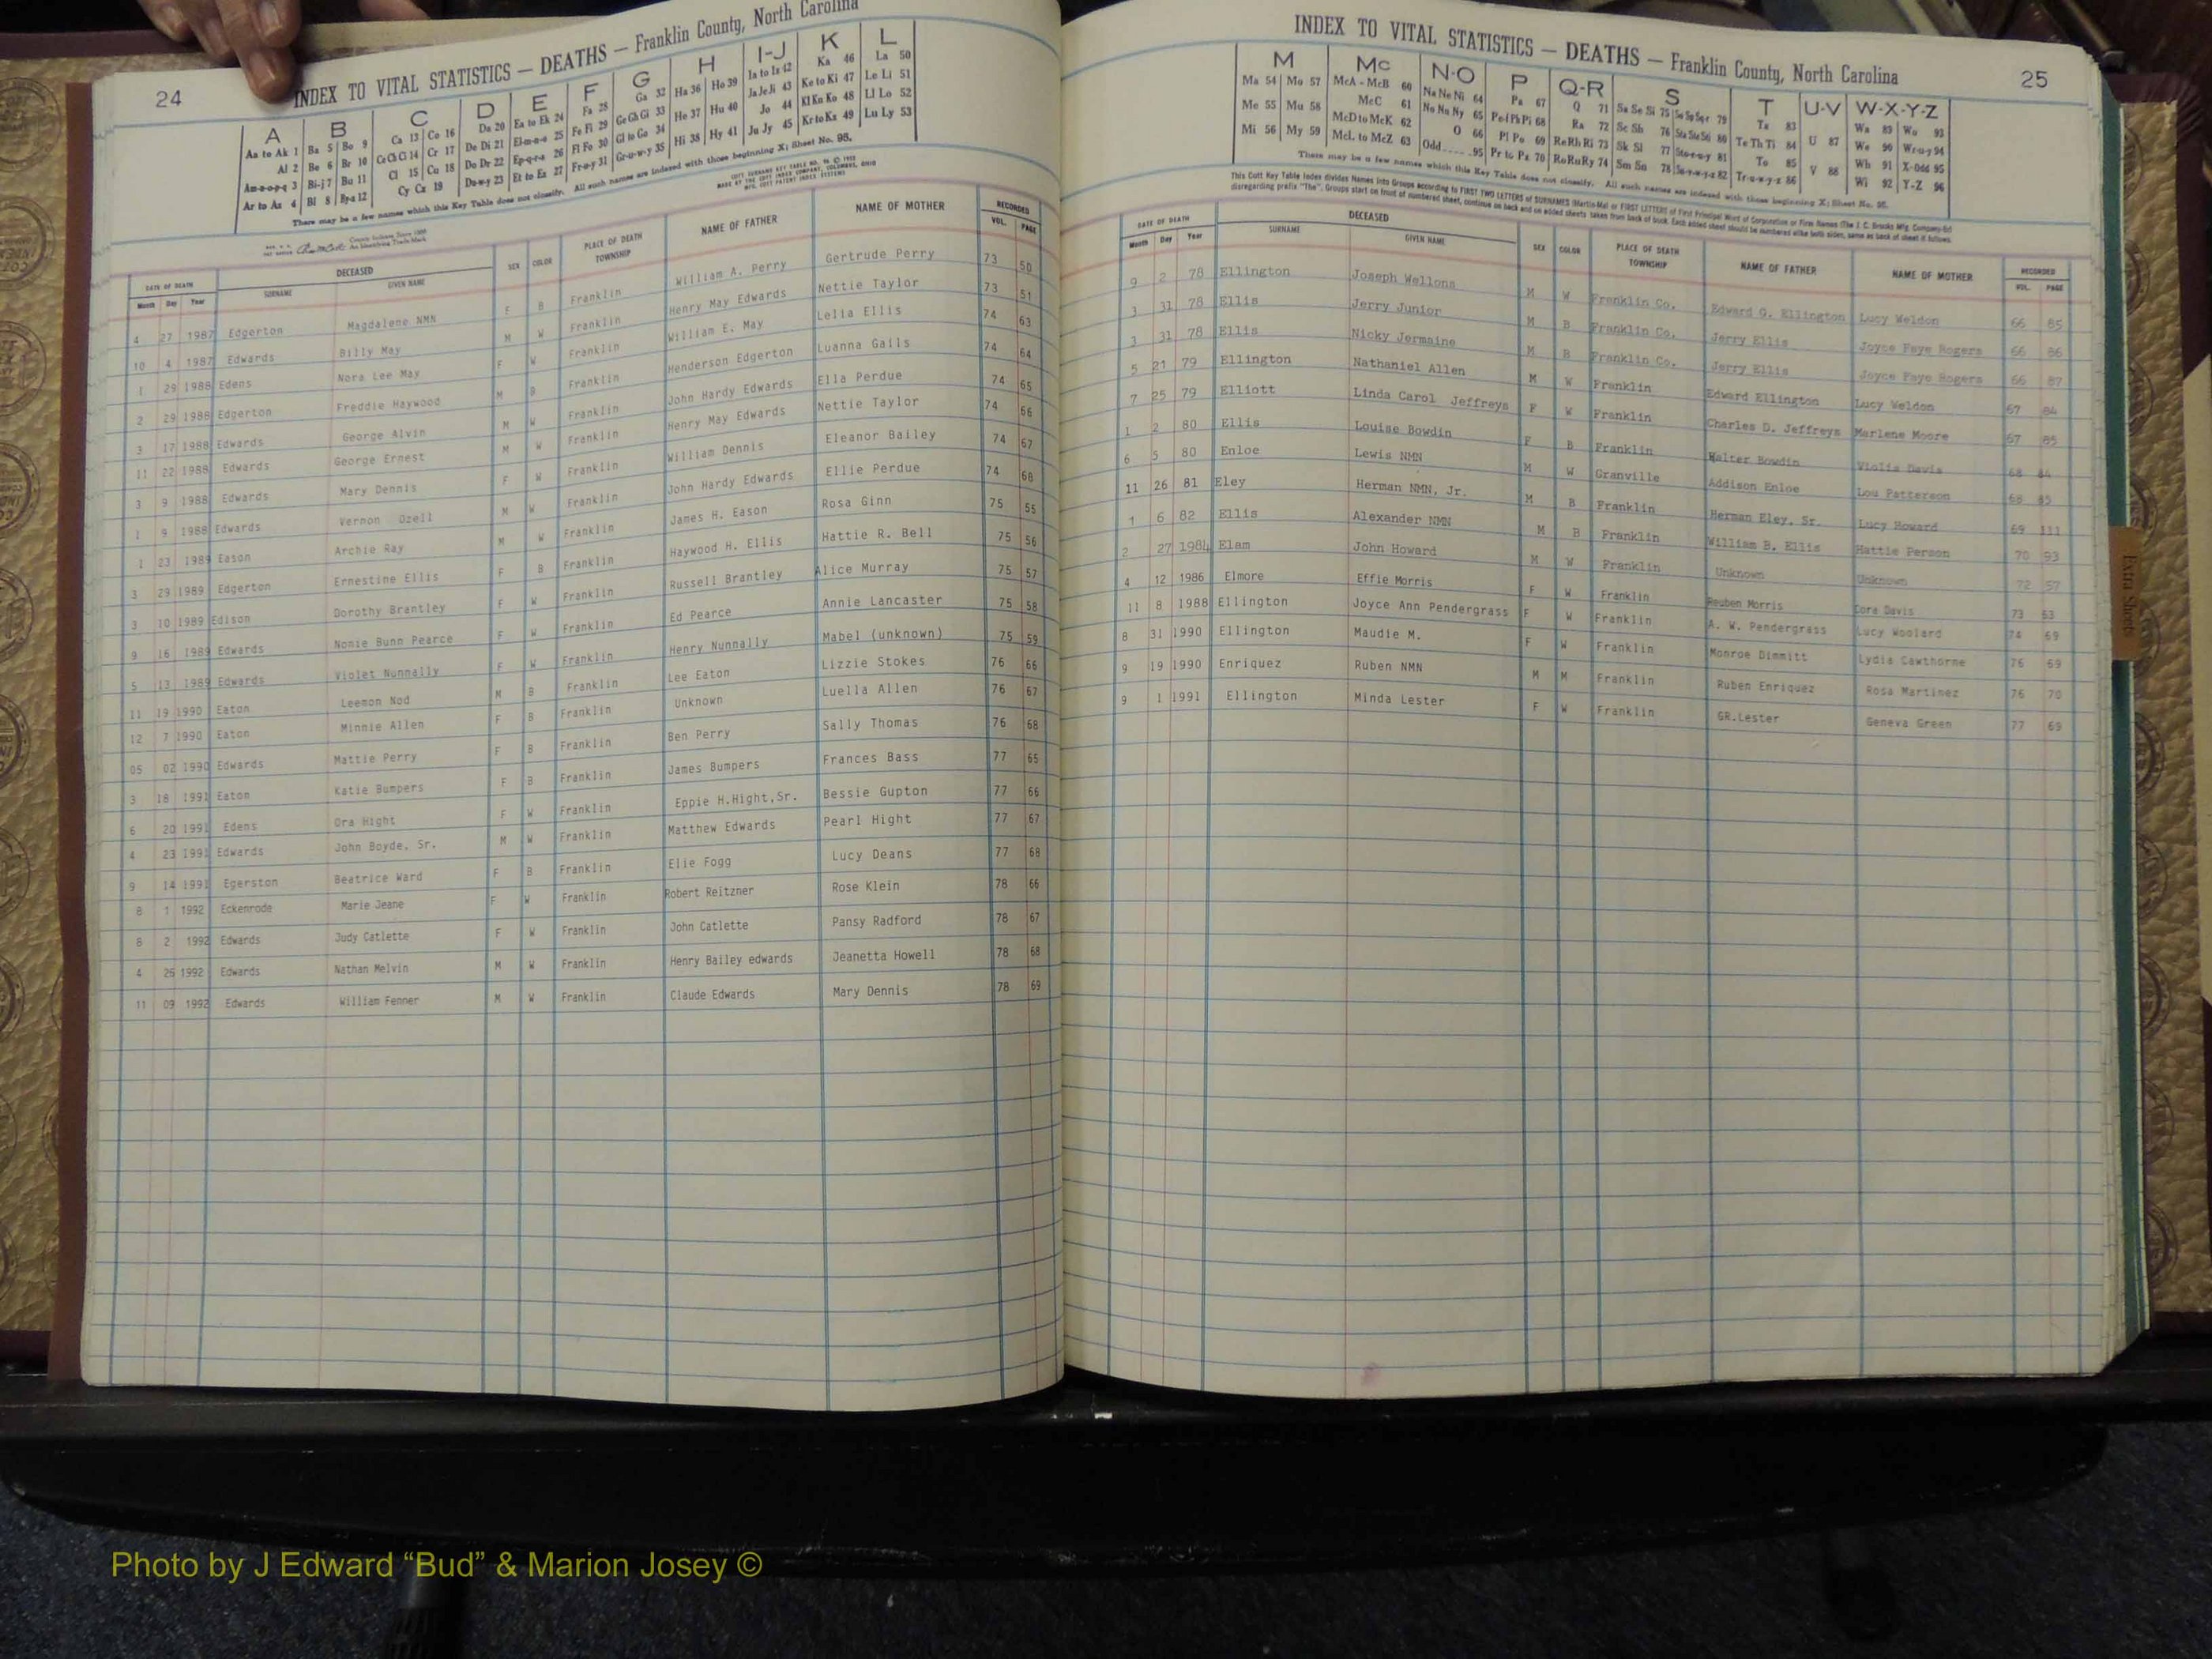 24
INDEX TO VITAL STATISTICS — DEATHS — Franklin County, North Carolina
A B C D E F G H I-J K L
Aa to Ak 1 Ba 5 Bo 9 Ca 13 Co 16 Da 20 Ea to Ek 24 Fa 28 Ga 32 Ha 36 Ho 39 Ia to Iz 42 Ka 46 La 50
Al 2 Be 6 Br 10 Ce Ch Ci 14 Cr 17 De Di 21 El-m-n-o 25 Fe Fi 29 Ge Gh Gi 33 He 37 Hu 40 Ja Je Ji 43 Ke to Ki 47 Le Li 51
Am-n-o-p-q 3 Bi-j 7 Bu 11 Cl 15 Cu 18 Do Dr 22 Ep-q-r-s 26 Fl Fo 30 Gl to Go 34 Hi 38 Hy 41 Jo 44 Kl Kn Ko 48 Ll Lo 52
Ar to Az 4 Bl 8 By-z 12 Cy Cz 19 Du-w-y 23 Et to Ez 27 Fr-u-y 31 Gr-u-w-y 35 Ju Jy 45 Kr to Kz 49 Lu Ly 53
There may be a few names which this Key Table does not classify. All such names are indexed with those beginning X; Sheet No. 95.
DATE OF DEATH DECEASED SEX COLOR PLACE OF DEATH TOWNSHIP NAME OF FATHER NAME OF MOTHER RECORDED
Month Day Year SURNAME GIVEN NAME VOL. PAGE
4 27 1987 Edgerton Magdalene NMN F B Franklin William A. Perry Gertrude Perry 73 50
10 4 1987 Edwards Billy May M W Franklin Henry May Edwards Nettie Taylor 73 51
1 29 1988 Edens Nora Lee May F W Franklin William E. May Lelia Ellis 74 63
2 29 1988 Edgerton Freddie Haywood M B Franklin Henderson Edgerton Luanna Gails 74 64
3 17 1988 Edwards George Alvin M W Franklin John Hardy Edwards Ella Perdue 74 65
11 22 1988 Edwards George Ernest M W Franklin Henry May Edwards Nettie Taylor 74 66
3 9 1988 Edwards Mary Dennis F W Franklin William Dennis Eleanor Bailey 74 67
1 9 1988 Edwards Vernon Ozell M W Franklin John Hardy Edwards Ellie Perdue 74 68
1 23 1989 Eason Archie Ray M W Franklin James H. Eason Rosa Ginn 75 55
3 29 1989 Edgerton Ernestine Ellis F B Franklin Haywood H. Ellis Hattie R. Bell 75 56
3 10 1989 Edison Dorothy Brantley F W Franklin Russell Brantley Alice Murray 75 57
9 16 1989 Edwards Nonie Bunn Pearce F W Franklin Ed Pearce Annie Lancaster 75 58
5 13 1989 Edwards Violet Nunnally F W Franklin Henry Nunnally Mabel (unknown) 75 59
11 19 1990 Eaton Leemon Nod M B Franklin Lee Eaton Lizzie Stokes 76 66
12 7 1990 Eaton Minnie Allen F B Franklin Unknown Luella Allen 76 67
05 02 1990 Edwards Mattie Perry F B Franklin Ben Perry Sally Thomas 76 68
3 18 1991 Eaton Katie Bumpers F B Franklin James Bumpers Frances Bass 77 65
6 20 1991 Edens Ora Hight F W Franklin Eppie H.Hight,Sr. Bessie Gupton 77 66
4 23 1991 Edwards John Boyde, Sr. M W Franklin Matthew Edwards Pearl Hight 77 67
9 14 1991 Egerston Beatrice Ward F B Franklin Elie Fogg Lucy Deans 77 68
8 1 1992 Eckenrode Marie Jeane F W Franklin Robert Reitzner Rose Klein 78 66
8 2 1992 Edwards Judy Catlette F W Franklin John Catlette Pansy Radford 78 67
4 26 1992 Edwards Nathan Melvin M W Franklin Henry Bailey edwards Jeanetta Howell 78 68
11 09 1992 Edwards William Fenner M W Franklin Claude Edwards Mary Dennis 78 69
INDEX TO VITAL STATISTICS — DEATHS — Franklin County, North Carolina
25
M Mc N-O P Q-R S T U-V W-X-Y-Z
Ma 54 Mo 57 McA - McB 60 Na Ne Ni 64 Pa 67 Q 71 Sa Se Si 75 So Sp Sq-r 79 Ta 83 U 87 Wa 89 Wo 93
Me 55 Mu 58 McC 61 No Nu Ny 65 Pe-f Ph Pi 68 Ra 72 Sc Sh 76 Sta Ste Sti 80 Te Th Ti 84 We 90 Wr-u-y 94
Mi 56 My 59 McD to McK 62 O 66 Pl Po 69 Re Rh Ri 73 Sk Sl 77 Sto-r-u-y 81 To 85 V 88 Wh 91 X-Odd 95
McL to McZ 63 Odd 95 Pr to Pz 70 Ro Ru Ry 74 Sm Sn 78 Su-v-w-y-z 82 Tr-u-w-y-z 86 Wi 92 Y-Z 96
There may be a few names which this Key Table does not classify. All such names are indexed with those beginning X; Sheet No. 95.
DATE OF DEATH DECEASED SEX COLOR PLACE OF DEATH TOWNSHIP NAME OF FATHER NAME OF MOTHER RECORDED
Month Day Year SURNAME GIVEN NAME VOL. PAGE
9 2 78 Ellington Joseph Wellons M W Franklin Co. Edward G. Ellington Lucy Weldon 66 85
3 31 78 Ellis Jerry Junior M B Franklin Co. Jerry Ellis Joyce Faye Rogers 66 86
3 31 78 Ellis Nicky Jermaine M B Franklin Co. Jerry Ellis Joyce Faye Rogers 66 87
5 21 79 Ellington Nathaniel Allen M W Franklin Edward Ellington Lucy Weldon 67 84
7 25 79 Elliott Linda Carol Jeffreys F W Franklin Charles D. Jeffreys Marlene Moore 67 85
1 2 80 Ellis Louise Bowdin F B Franklin Walter Bowdin Violis Davis 68 84
6 5 80 Enloe Lewis NMN M W Granville Addison Enloe Lou Patterson 68 85
11 26 81 Eley Herman NMN, Jr. M B Franklin Herman Eley, Sr. Lucy Howard 69 111
1 6 82 Ellis Alexander NMN M B Franklin William B. Ellis Hattie Person 70 93
2 27 1984 Elam John Howard M W Franklin Unknown Unknown 72 57
4 12 1986 Elmore Effie Morris F W Franklin Reuben Morris Cora Davis 73 63
11 8 1988 Ellington Joyce Ann Pendergrass F W Franklin A. W. Pendergrass Lucy Woolard 74 69
8 31 1990 Ellington Maudie M. F W Franklin Monroe Dimmitt Lydia Cawthorne 76 69
9 19 1990 Enriquez Ruben NMN M M Franklin Ruben Enriquez Rosa Martinez 76 70
9 1 1991 Ellington Minda Lester F W Franklin GR.Lester Geneva Green 77 69
Extra Sheets
Photo by J Edward “Bud” & Marion Josey ©